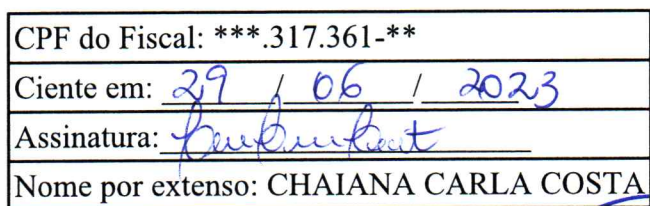 CPF do Fiscal: ***.317.361-**
Ciente em: 29 / 06 / 2023
Assinatura:
Nome por extenso: CHAIANA CARLA COSTA